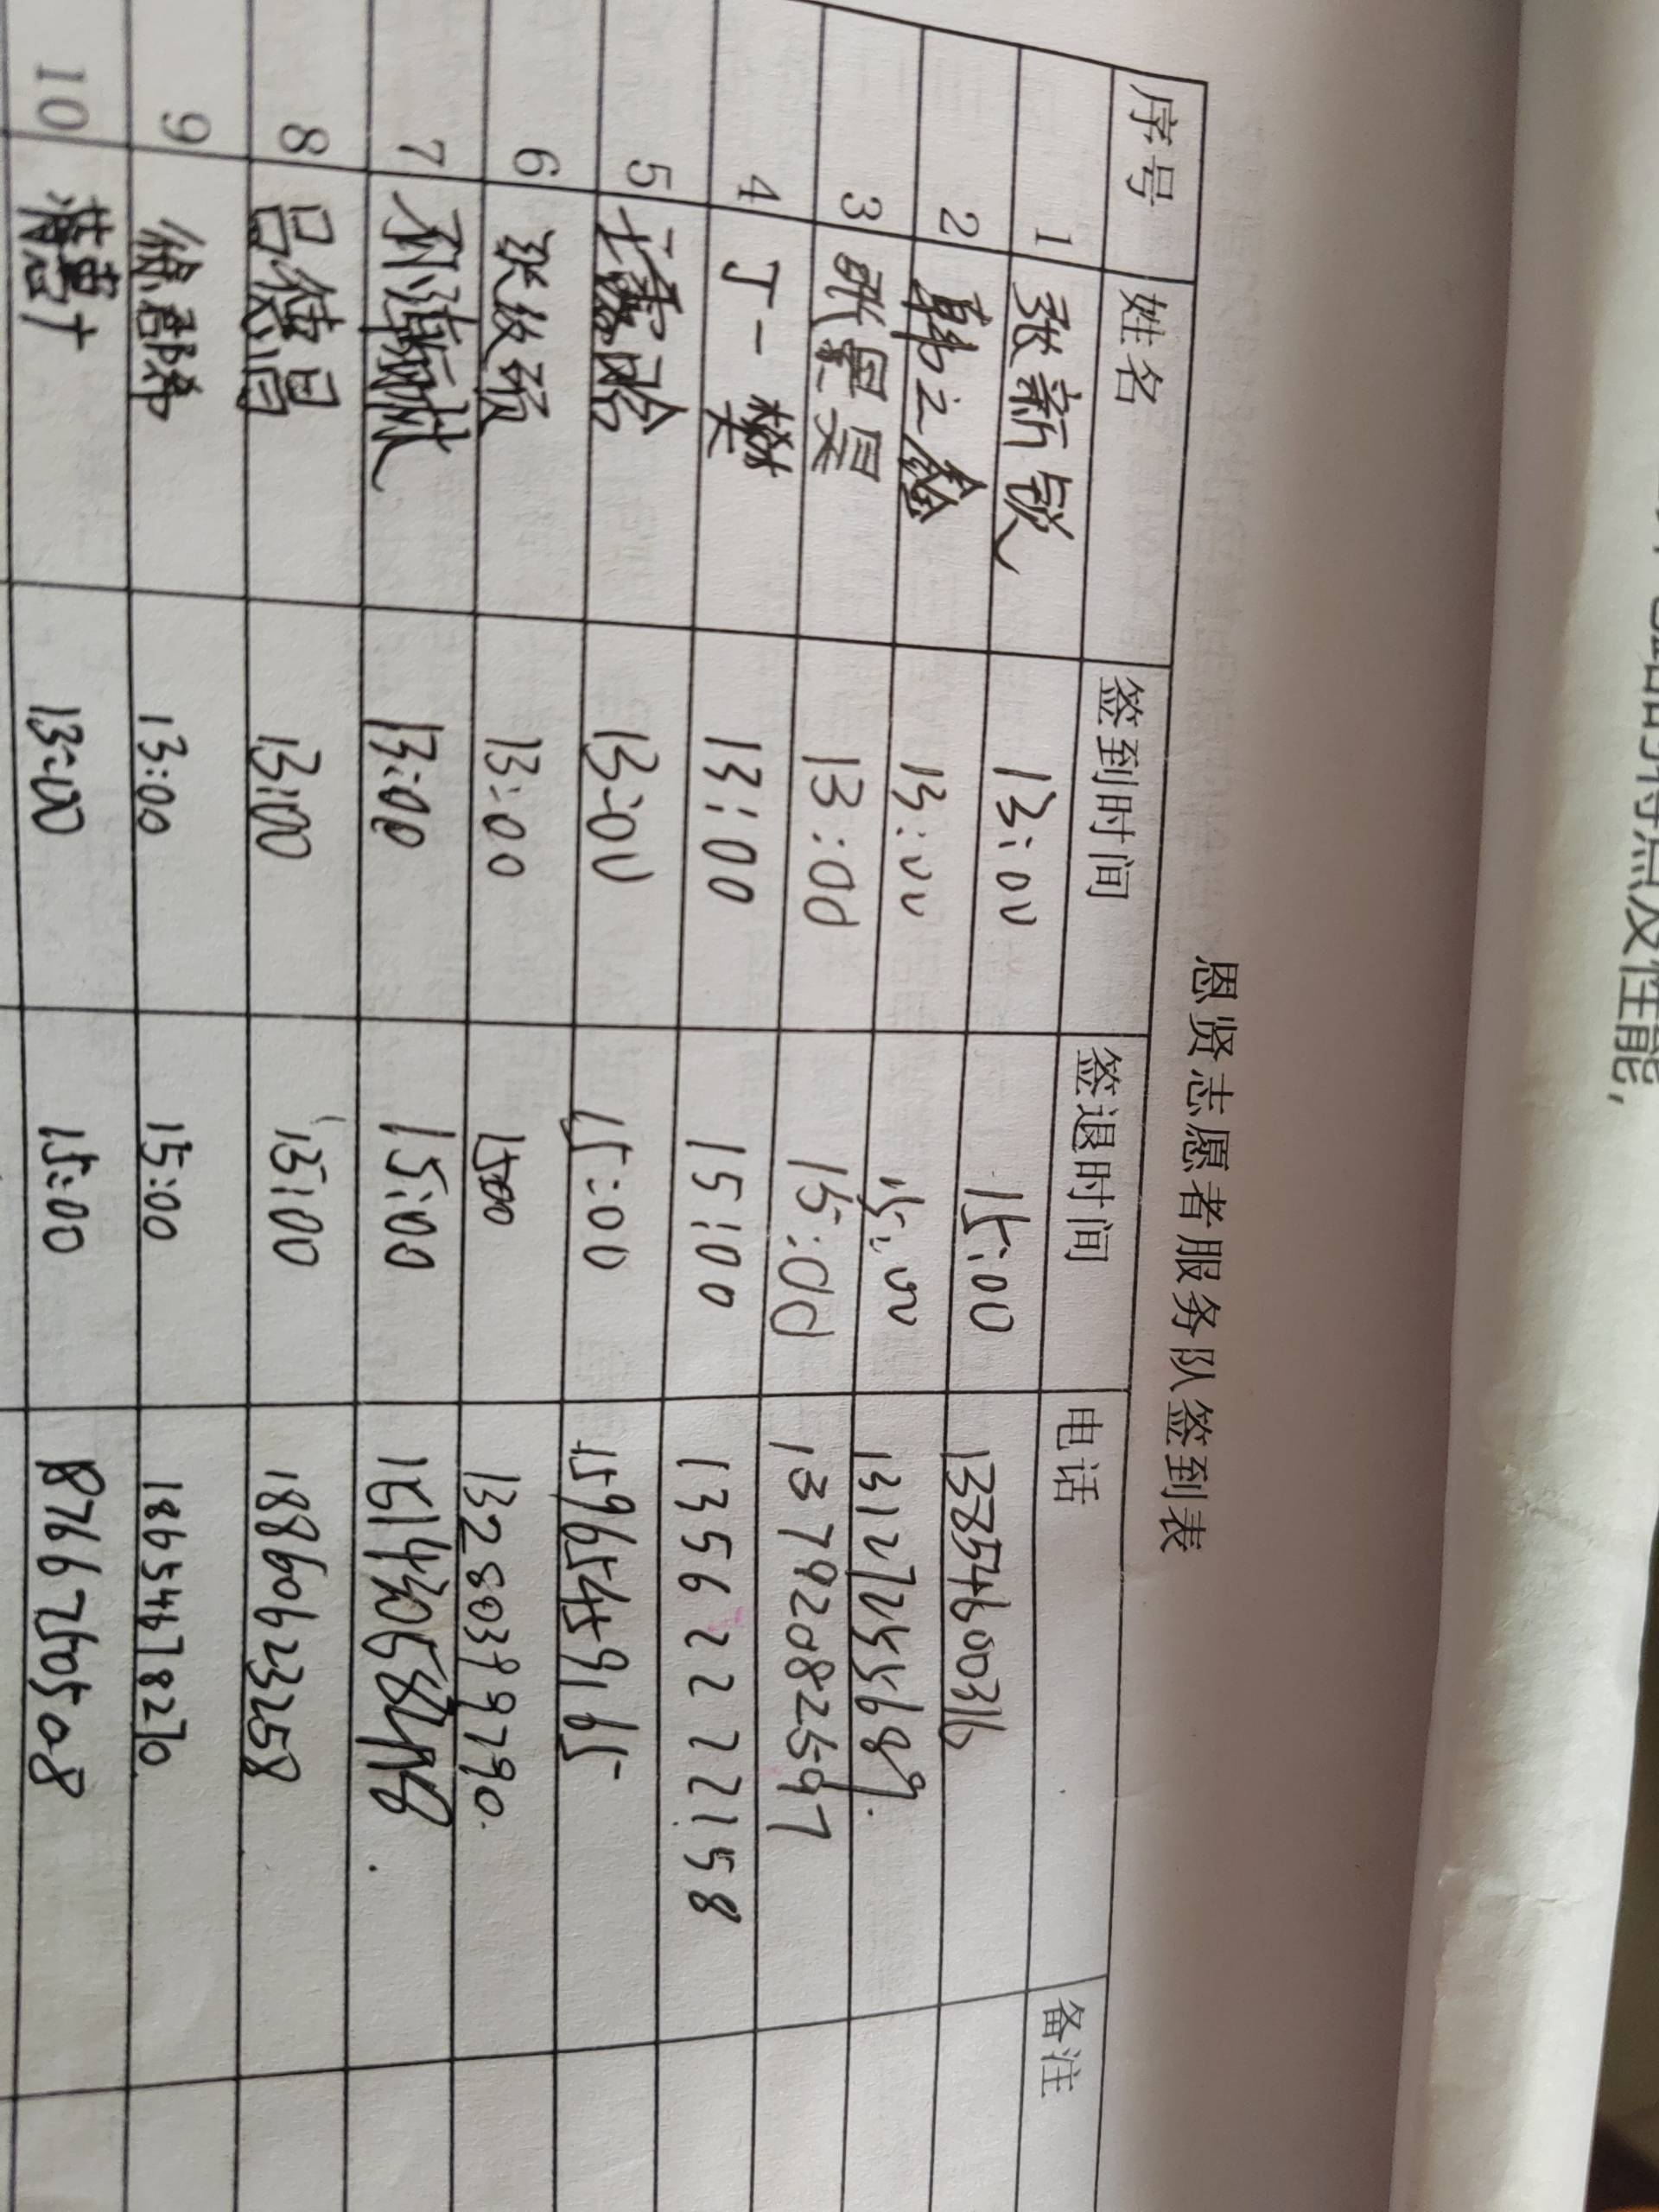 恩贤志愿者服务队签到表
序号 姓名 签到时间 签退时间 电话 备注
1 张新锐 13:00 15:00 13854600316
2 韩之鑫 13:00 15:00
3 张景昊 13:00 15:00 13792082597
4 丁一樊 13:00 15:00 13562272158
5 13:00 15:00 15965459165
6 13:00 15:00 13280399790
7 13:00 15:00
8 吕德昌 13:00 15:00 18860623258
9 13:00 15:00 18654678270
10 13:00 15:00
点及性能,